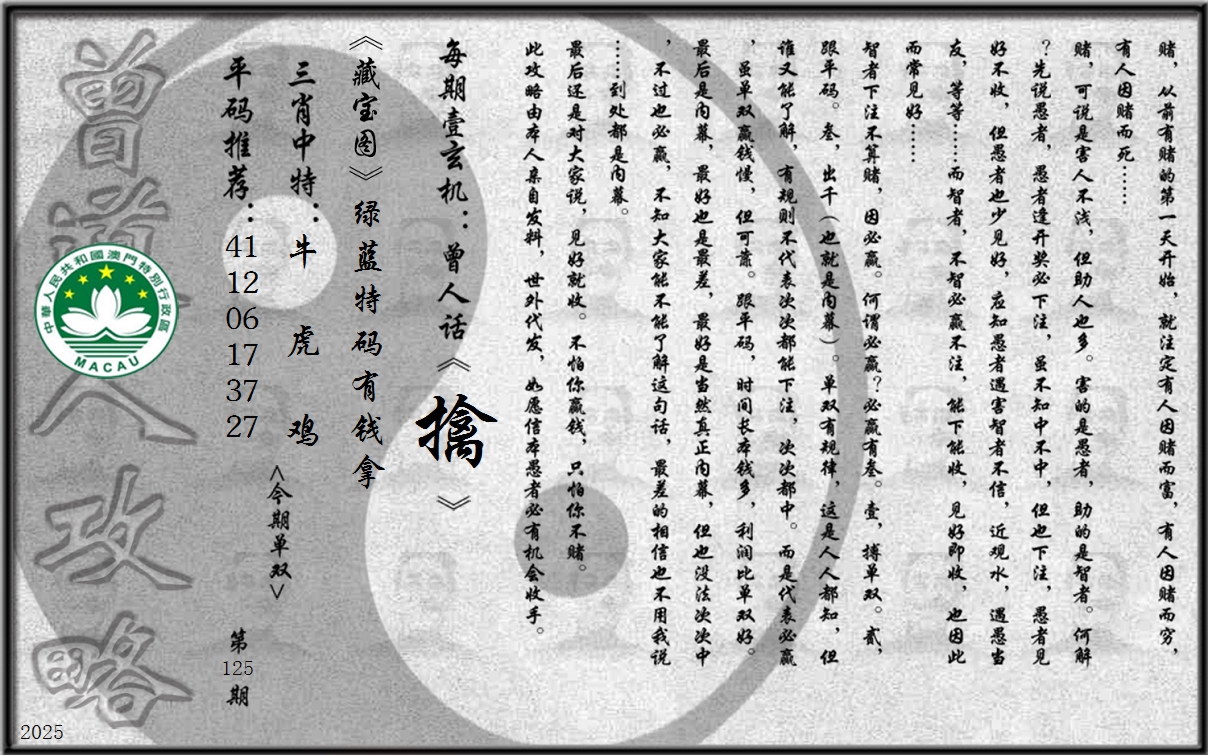 赌，从前有赌的第一天开始，就注定有人因赌而富，有人因赌而穷，
有人因赌而死……
赌，可说是害人不浅，但助人也多。害的是愚者，助的是智者。何解
？先说愚者，愚者逢开奖必下注，虽不知中不中，但也下注，愚者见
好不收，但愚者也少见好，应知愚者遇害智者不信，近观水，遇愚当
友，等等……而智者，不智必赢不注，能下能收，见好即收，也因此
而常见好……
智者下注不算赌，因必赢。何谓必赢？必赢有叁。壹，搏单双。贰，
跟平码。叁，出千（也就是内幕）。单双有规律，这是人人都知，但
谁又能了解，有规则不代表次次都能下注，次次都中。而是代表必赢
，虽单双赢钱慢，但可靠。跟平码，时间长本钱多，利润比单双好。
最后是内幕，最好也是最差，最好是当然真正内幕，但也没法次次中
，不过也必赢，不知大家能不能了解这句话，最差的相信也不用我说
……到处都是内幕。
最后还是对大家说，见好就收。不怕你赢钱，只怕你不赌。
此攻略由本人亲自发料，世外代发，如愿信本愚者必有机会收手。
每期壹玄机：曾人话《擒》
《藏宝图》绿蓝特码有钱拿
三肖中特：牛 虎 鸡
<今期单双>
平码推荐：41 12 06 17 37 27
第125期
曾道人攻略
中華人民共和國澳門特別行政區
MACAU
2025